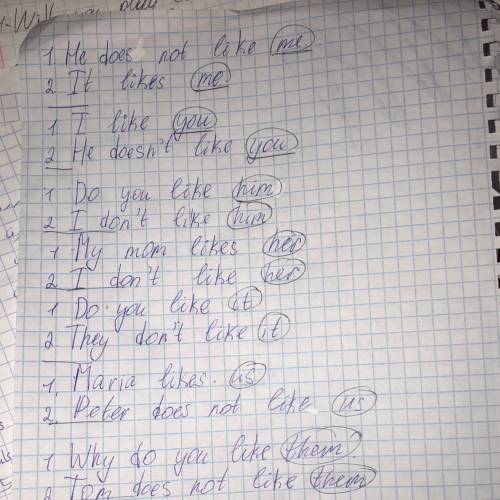 1. He does not like me
2 It likes me
1 I like you
2 He doesn't like you
1 Do you like him
2 I don't like him
1 My mom likes her
2 I don't like her
1 Do you like it
2 They don't like it
1. Maria likes. us
2. Peter does not like us
1 Why do you like them?
2 Tom does not like them